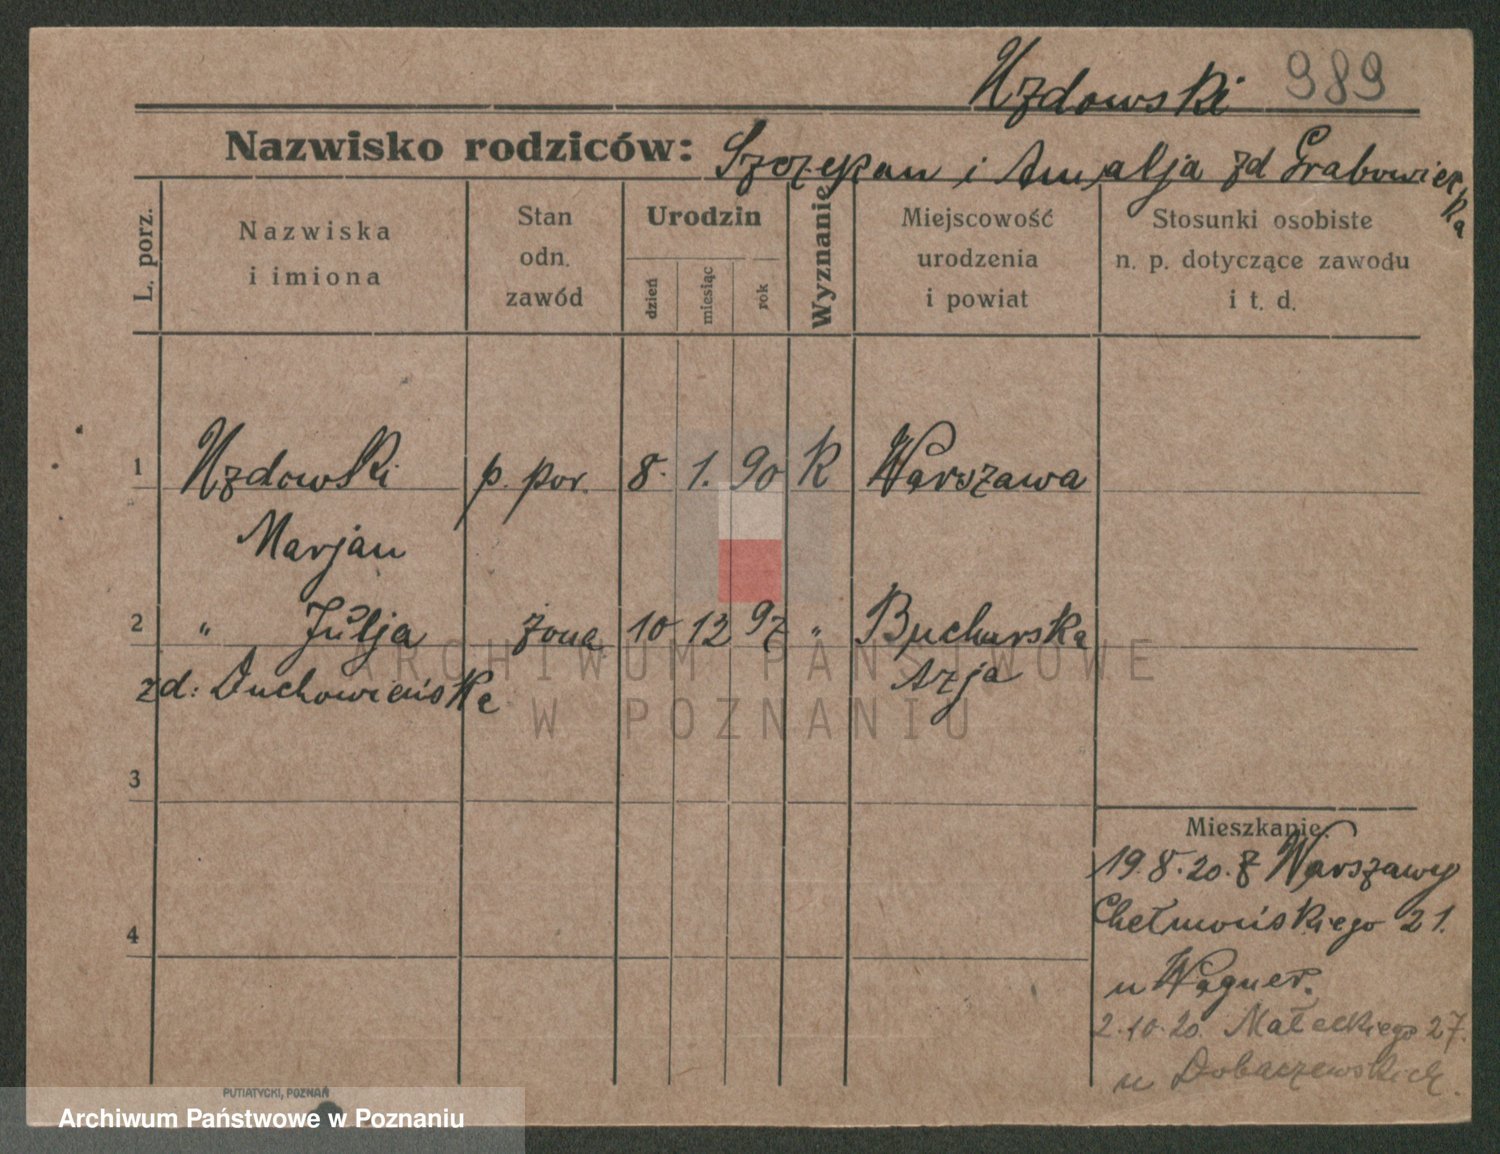 Uzdowski 989
Nazwisko rodziców: Szczepan i Amalja zd Grabowiecka
L. porz.
Nazwiska
i imiona
Stan
odn.
zawód
Urodzin
dzień
miesiąc
rok
Wyznanie
Miejscowość
urodzenia
i powiat
Stosunki osobiste
n. p. dotyczące zawodu
i t. d.
1 Uzdowski p. por. 8. 1. 90 R Warszawa
Marjan
2 " Julja żona 10 12 97 " Bucharska
zd: Duchowieńska Azja
3
4
Mieszkanie:
19.8.20. z Warszawy
Chełmońskiego 21.
u Wagner.
2.10.20. Małeckiego 27.
u Dobaczewskich.
ARCHIWUM PAŃSTWOWE
W POZNANIU
PUTIATYCKI, POZNAŃ
Archiwum Państwowe w Poznaniu